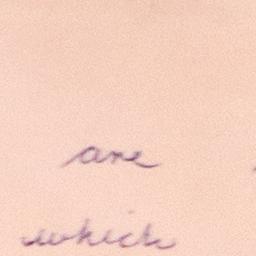 are
which